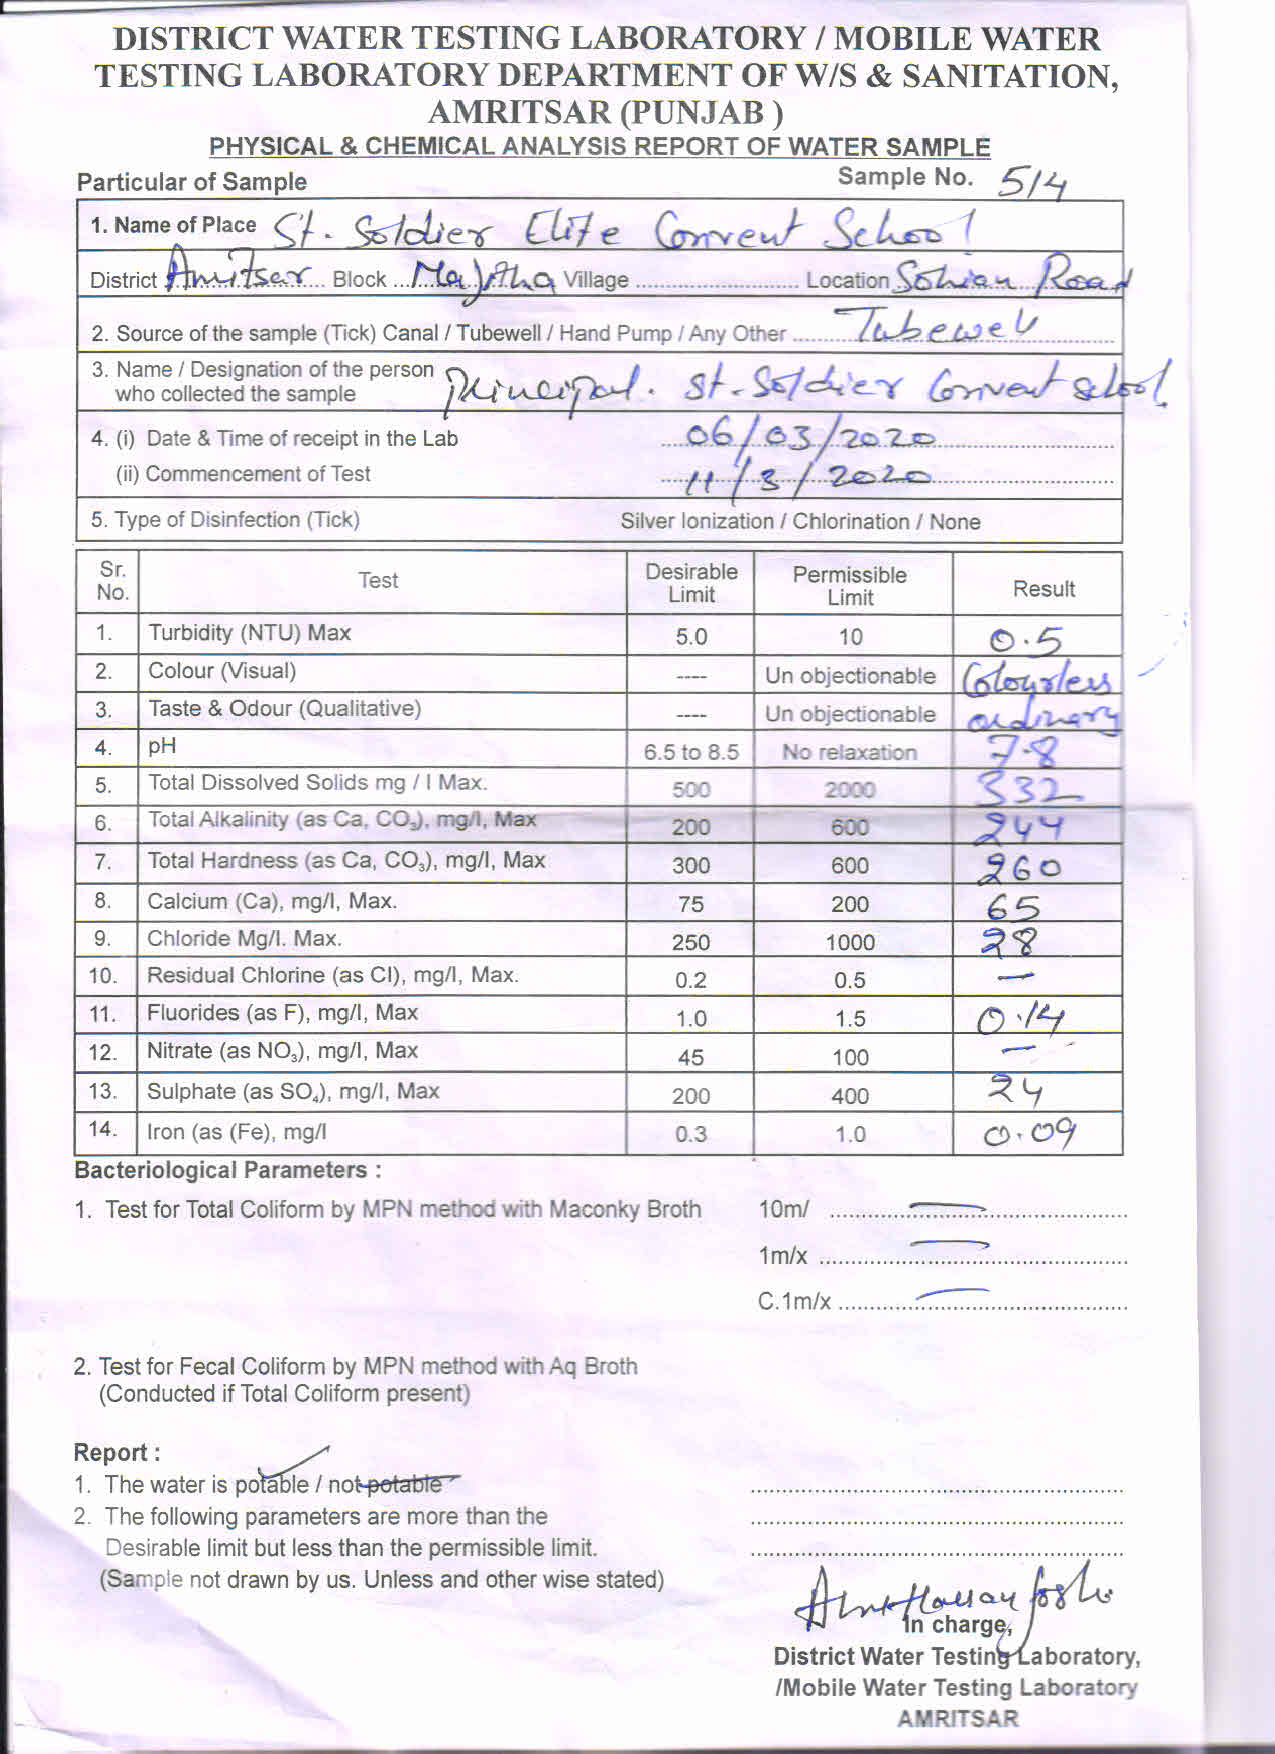 DISTRICT WATER TESTING LABORATORY / MOBILE WATER
TESTING LABORATORY DEPARTMENT OF W/S & SANITATION,
AMRITSAR (PUNJAB )
PHYSICAL & CHEMICAL ANALYSIS REPORT OF WATER SAMPLE
Particular of Sample Sample No. 514
1. Name of Place St. Soldier Elite Convent School
District Amritsar Block Majitha Village .......... Location Sohian Road
2. Source of the sample (Tick) Canal / Tubewell / Hand Pump / Any Other ..... Tubewell
3. Name / Designation of the person
who collected the sample Principal. St. Soldier Convent School
4. (i) Date & Time of receipt in the Lab 06/03/2020
(ii) Commencement of Test 11/3/2020
5. Type of Disinfection (Tick) Silver Ionization / Chlorination / None
Sr. No. Test Desirable Limit Permissible Limit Result
1. Turbidity (NTU) Max 5.0 10 0.5
2. Colour (Visual) ---- Un objectionable Colourless
3. Taste & Odour (Qualitative) ---- Un objectionable ordinary
4. pH 6.5 to 8.5 No relaxation 7.8
5. Total Dissolved Solids mg / l Max. 500 2000 332
6. Total Alkalinity (as Ca, CO₃), mg/l, Max 200 600 244
7. Total Hardness (as Ca, CO₃), mg/l, Max 300 600 260
8. Calcium (Ca), mg/l, Max. 75 200 65
9. Chloride Mg/l. Max. 250 1000 28
10. Residual Chlorine (as Cl), mg/l, Max. 0.2 0.5 —
11. Fluorides (as F), mg/l, Max 1.0 1.5 0.14
12. Nitrate (as NO₃), mg/l, Max 45 100 —
13. Sulphate (as SO₄), mg/l, Max 200 400 24
14. Iron (as (Fe), mg/l 0.3 1.0 0.09
Bacteriological Parameters :
1. Test for Total Coliform by MPN method with Maconky Broth 10m/ .......... —
1m/x .......... —
C.1m/x .......... —
2. Test for Fecal Coliform by MPN method with Aq Broth
(Conducted if Total Coliform present)
Report :
1. The water is potable / not potable
2. The following parameters are more than the
Desirable limit but less than the permissible limit.
(Sample not drawn by us. Unless and other wise stated)
In charge,
District Water Testing Laboratory,
/Mobile Water Testing Laboratory
AMRITSAR